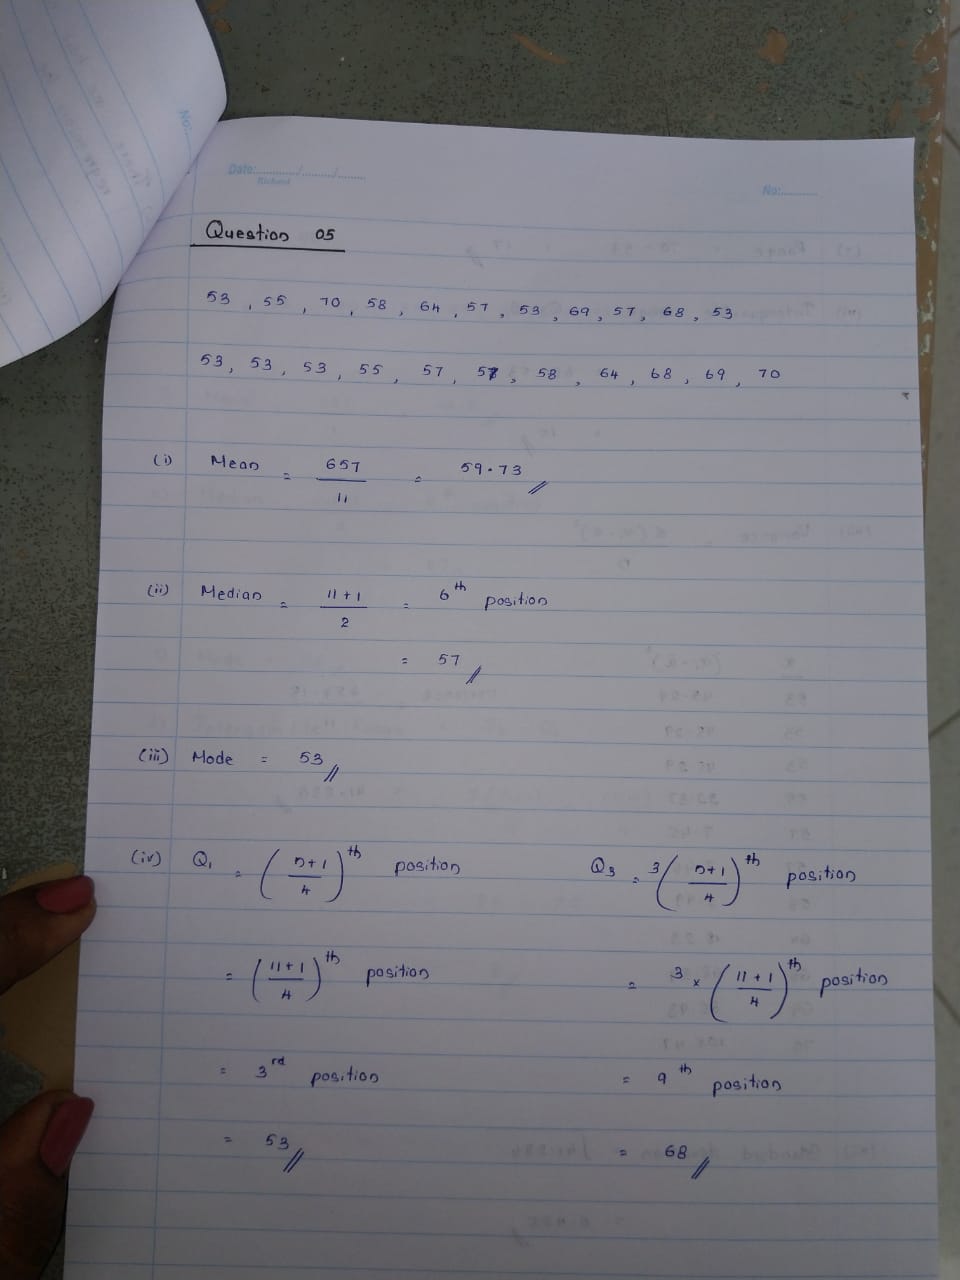 Date:............/............/.........
Richard
No:............
No:
Question 05
53 , 55 , 70 , 58 , 64 , 57 , 53 , 69 , 57 , 68 , 53
53 , 53 , 53 , 55 , 57 , 57 , 58 , 64 , 68 , 69 , 70
(i) Mean = 657/11 = 59.73
(ii) Median = (11+1)/2 = 6th position
= 57
(iii) Mode = 53
(iv) Q1 = ((n+1)/4)th position Q3 = 3((n+1)/4)th position
= ((11+1)/4)th position = 3 × ((11+1)/4)th position
= 3rd position = 9th position
= 53 = 68